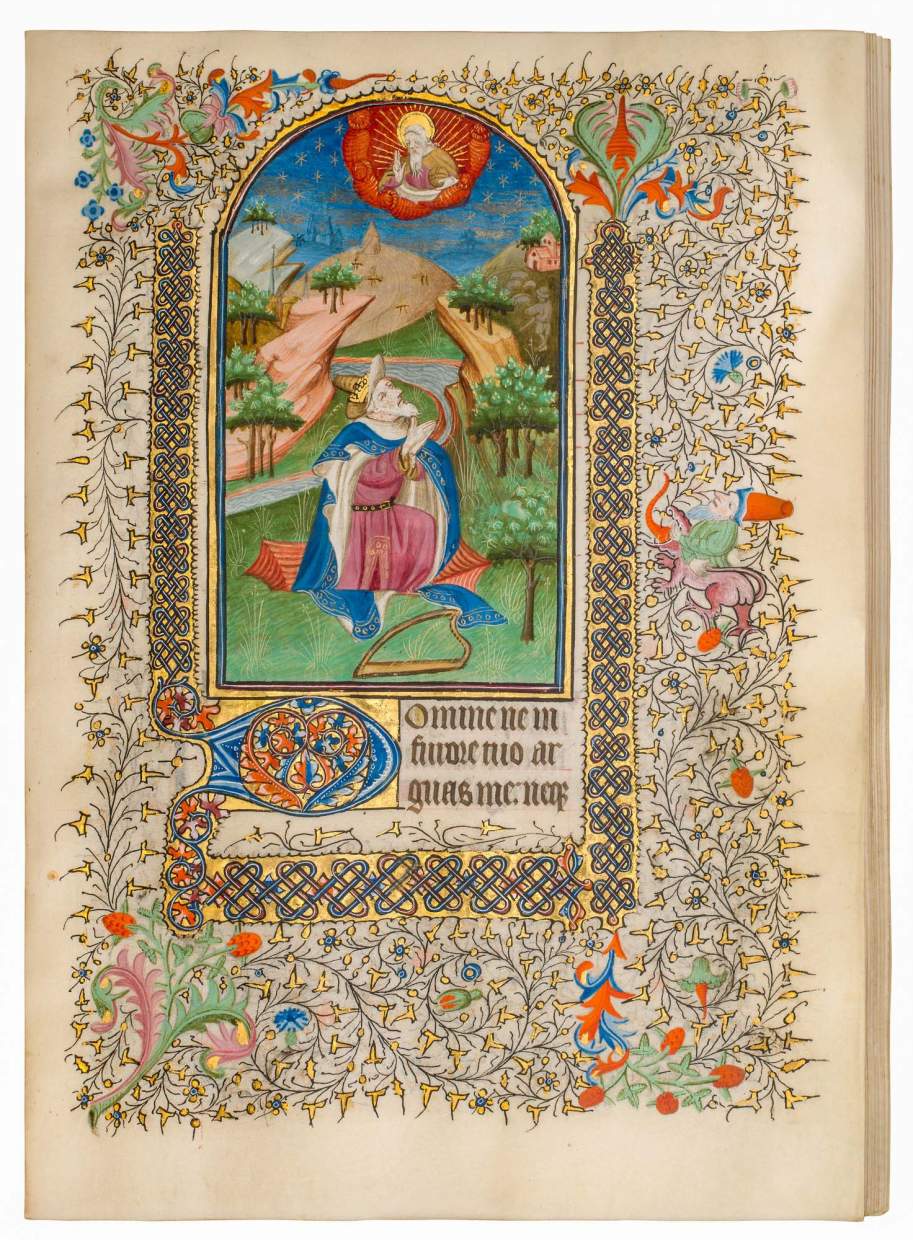 Domine ne in
furore tuo ar
guas me: neqꝫ